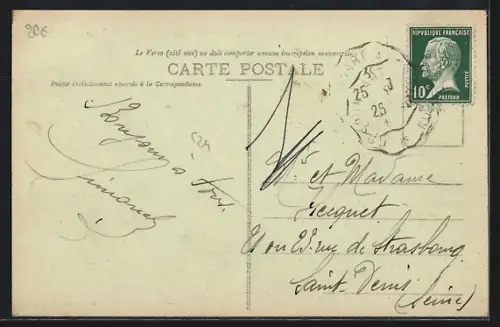 20€
Le Verso (côté vue) ne doit comporter aucune inscription manuscrite
CARTE POSTALE
Partie exclusivement réservée à la Correspondance
RÉPUBLIQUE FRANÇAISE
POSTES
10c
PASTEUR
25
26
Bonjour à tous
Mr et Madame
Jecquet
21 ou 23 rue de Strasbourg
Saint-Denis
(Seine)